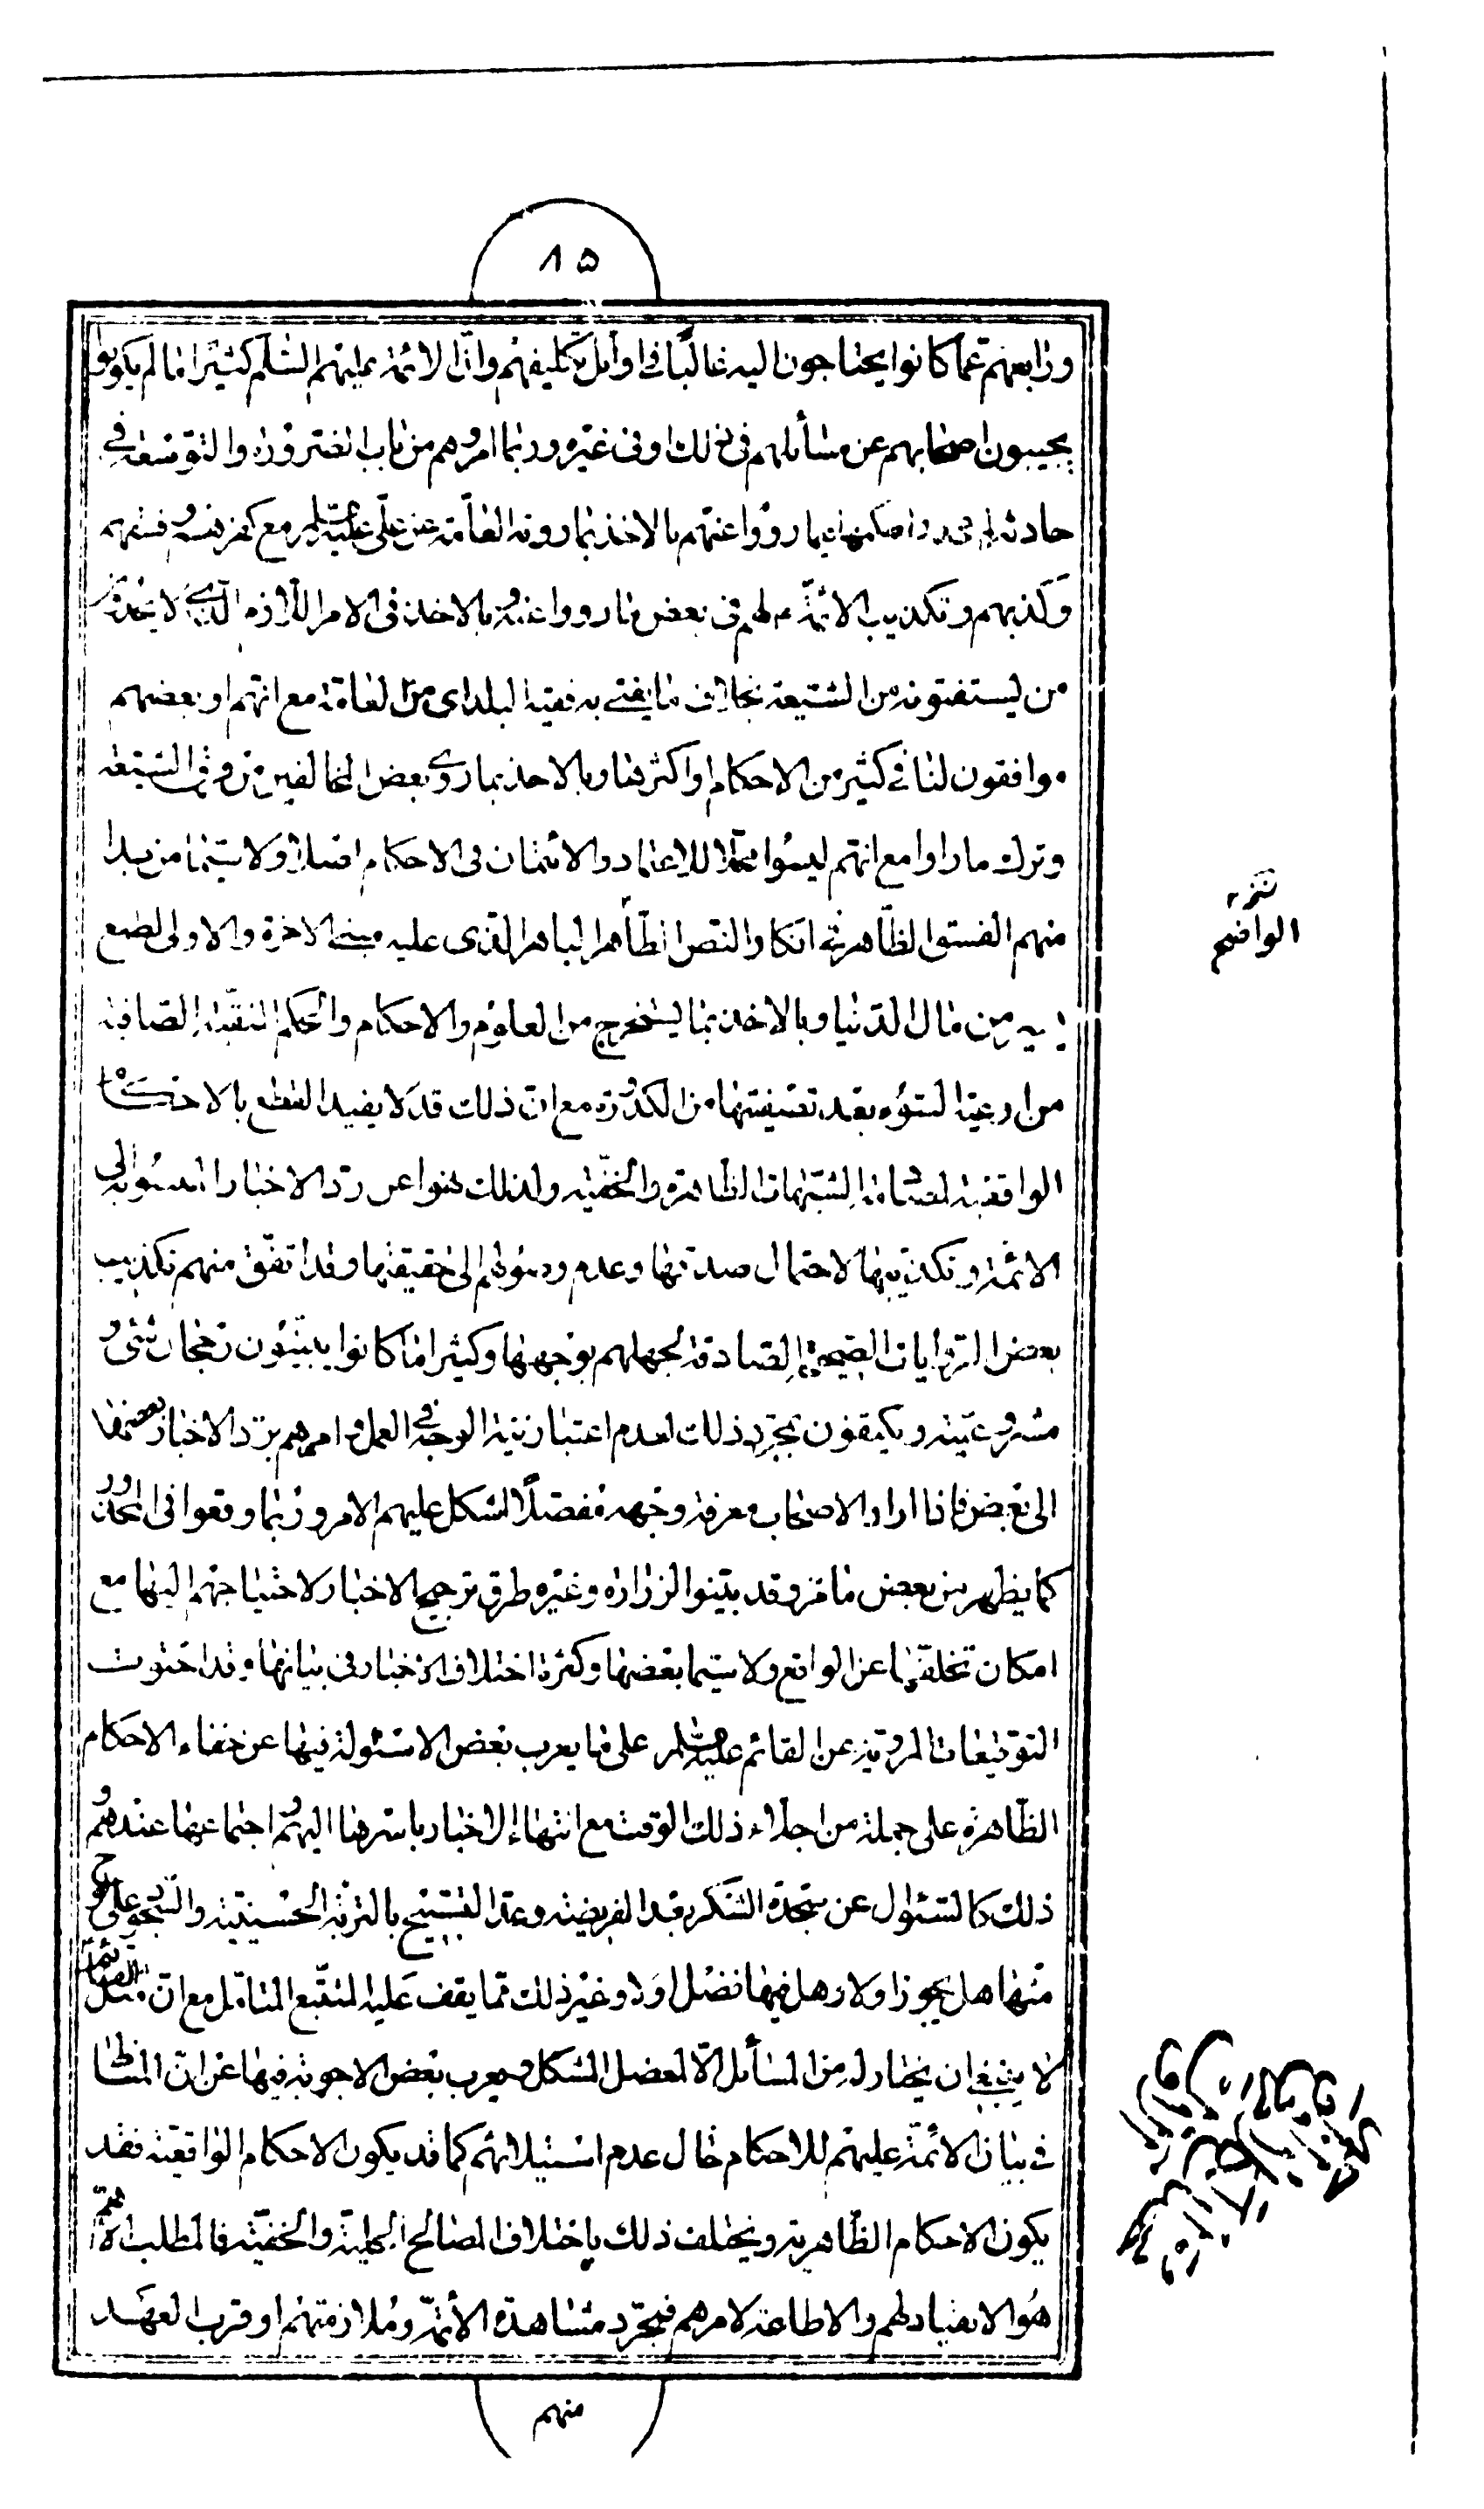 ٨٥
ورابعهم عما كانوا يحتاجون اليه غالبا فى اوايل تكليفهم وانّ الائمة عليهم السّلام كثيرا ما لم يكونوا
يجيبون اصحابهم عن مسائلهم فى ذلك او فى غيره وربما امروهم من باب الضرورة والتوسعة فى
حادثة لم يجدوا حكمها فيما رووا عنهم بالاخذ بما روته العامّة عن علىّ عليه السلم مع كفرهم وفسقهم
وكذبهم وتكذيب الائمّة لهم فى بعض ما رووا عنه وبالاخذ فى الامر اللازم الّذى لا يجدون
من يستفتونه من الشيعة بخلاف ما يفتى به فقيه البلد اى من العامة مع انهم او بعضهم
موافقون لنا فى كثير من الاحكام او اكثرها وبالاخذ بما روى بعض المخالفين من الشيعة
وترك ما راوا مع انهم ليسوا محلا للاعتماد والائتمان فى الاحكام اصلا ولا سيّما من بدا
منهم الفسق الظاهر ثم انكار النص الظاهر الباهر الذى عليه مبنى الاخرة والاولى لطمع
من مال الدنيا وبالاخذ بما يستخرج من العلوم والاحكام والحكم النقية الصافية
من اوعية السوء بعد تصفيتها من الكدورة مع ان ذلك قد لا يفيد القطع بالاحكام
الواقعية لمصادفة الشبهات الظاهرة والخفية ولذلك نهوا عن ردّ الاخبار المنسوبة الى
الائمة وتكذيبها لاحتمال صدقها وعدم وصولهم الى حقيقتها وقد اتفق منهم تكذيب
بعض الروايات الصحيحة الصادقة لجهلهم بوجهها وكثيرا ما كانوا يبيّنون رجحان شىء و
مشروعيته ويكتفون بمجرد ذلك لعدم اعتبار نيّة الوجه فى العمل وامرهم بردّ الاخبار بعضها
الى بعض فاذا اراد الاصحاب معرفة وجهه مفصّلا اشكل عليهم الامر وربما وقعوا فى المحذور
كما يظهر من بعض ما مرّ وقد بيّنوا لزرارة وغيره طرق ترجيح الاخبار لاحتياجهم اليها مع
امكان تخلفها عن الواقع ولا سيّما بعضها وكثرة اختلاف الاخبار فى بيانها وقد احتوت
التوقيعات المروية عن القائم عليه السلم على ما يعرب بعض الاسئولة فيها عن خفاء الاحكام
الظاهرة على جملة من اجلاء ذلك الوقت مع انتهاء الاخبار باسرها اليهم واجتماعها عندهم و
ذلك كالسئوال عن سجدة الشكر بعد الفريضة وعن التسبيح بالتربة الحسينية والسجود على لوح
منها هل يجوز اولا وهل فيها فضل اولا وغير ذلك مما يقف عليه المتتبع المتأمل مع ان مثل القائم
لا ينبغى ان يختار له من المسائل الّا المعضل المشكل ويعرب بعض الاجوبة فيها عن ان المناط
فى بيان الائمة عليهم للاحكام حال عدم استيلائهم كما قد يكون الاحكام الواقعية فقد
يكون الاحكام الظاهرية ويختلف ذلك باختلاف المصالح الجلية والخفية فالمطلب الاهم
هو الانقياد لهم والاطاعة لامرهم فبمجرّد مشاهدة الائمّة وملازمتهم او قرب العهد
منهم
الواقع